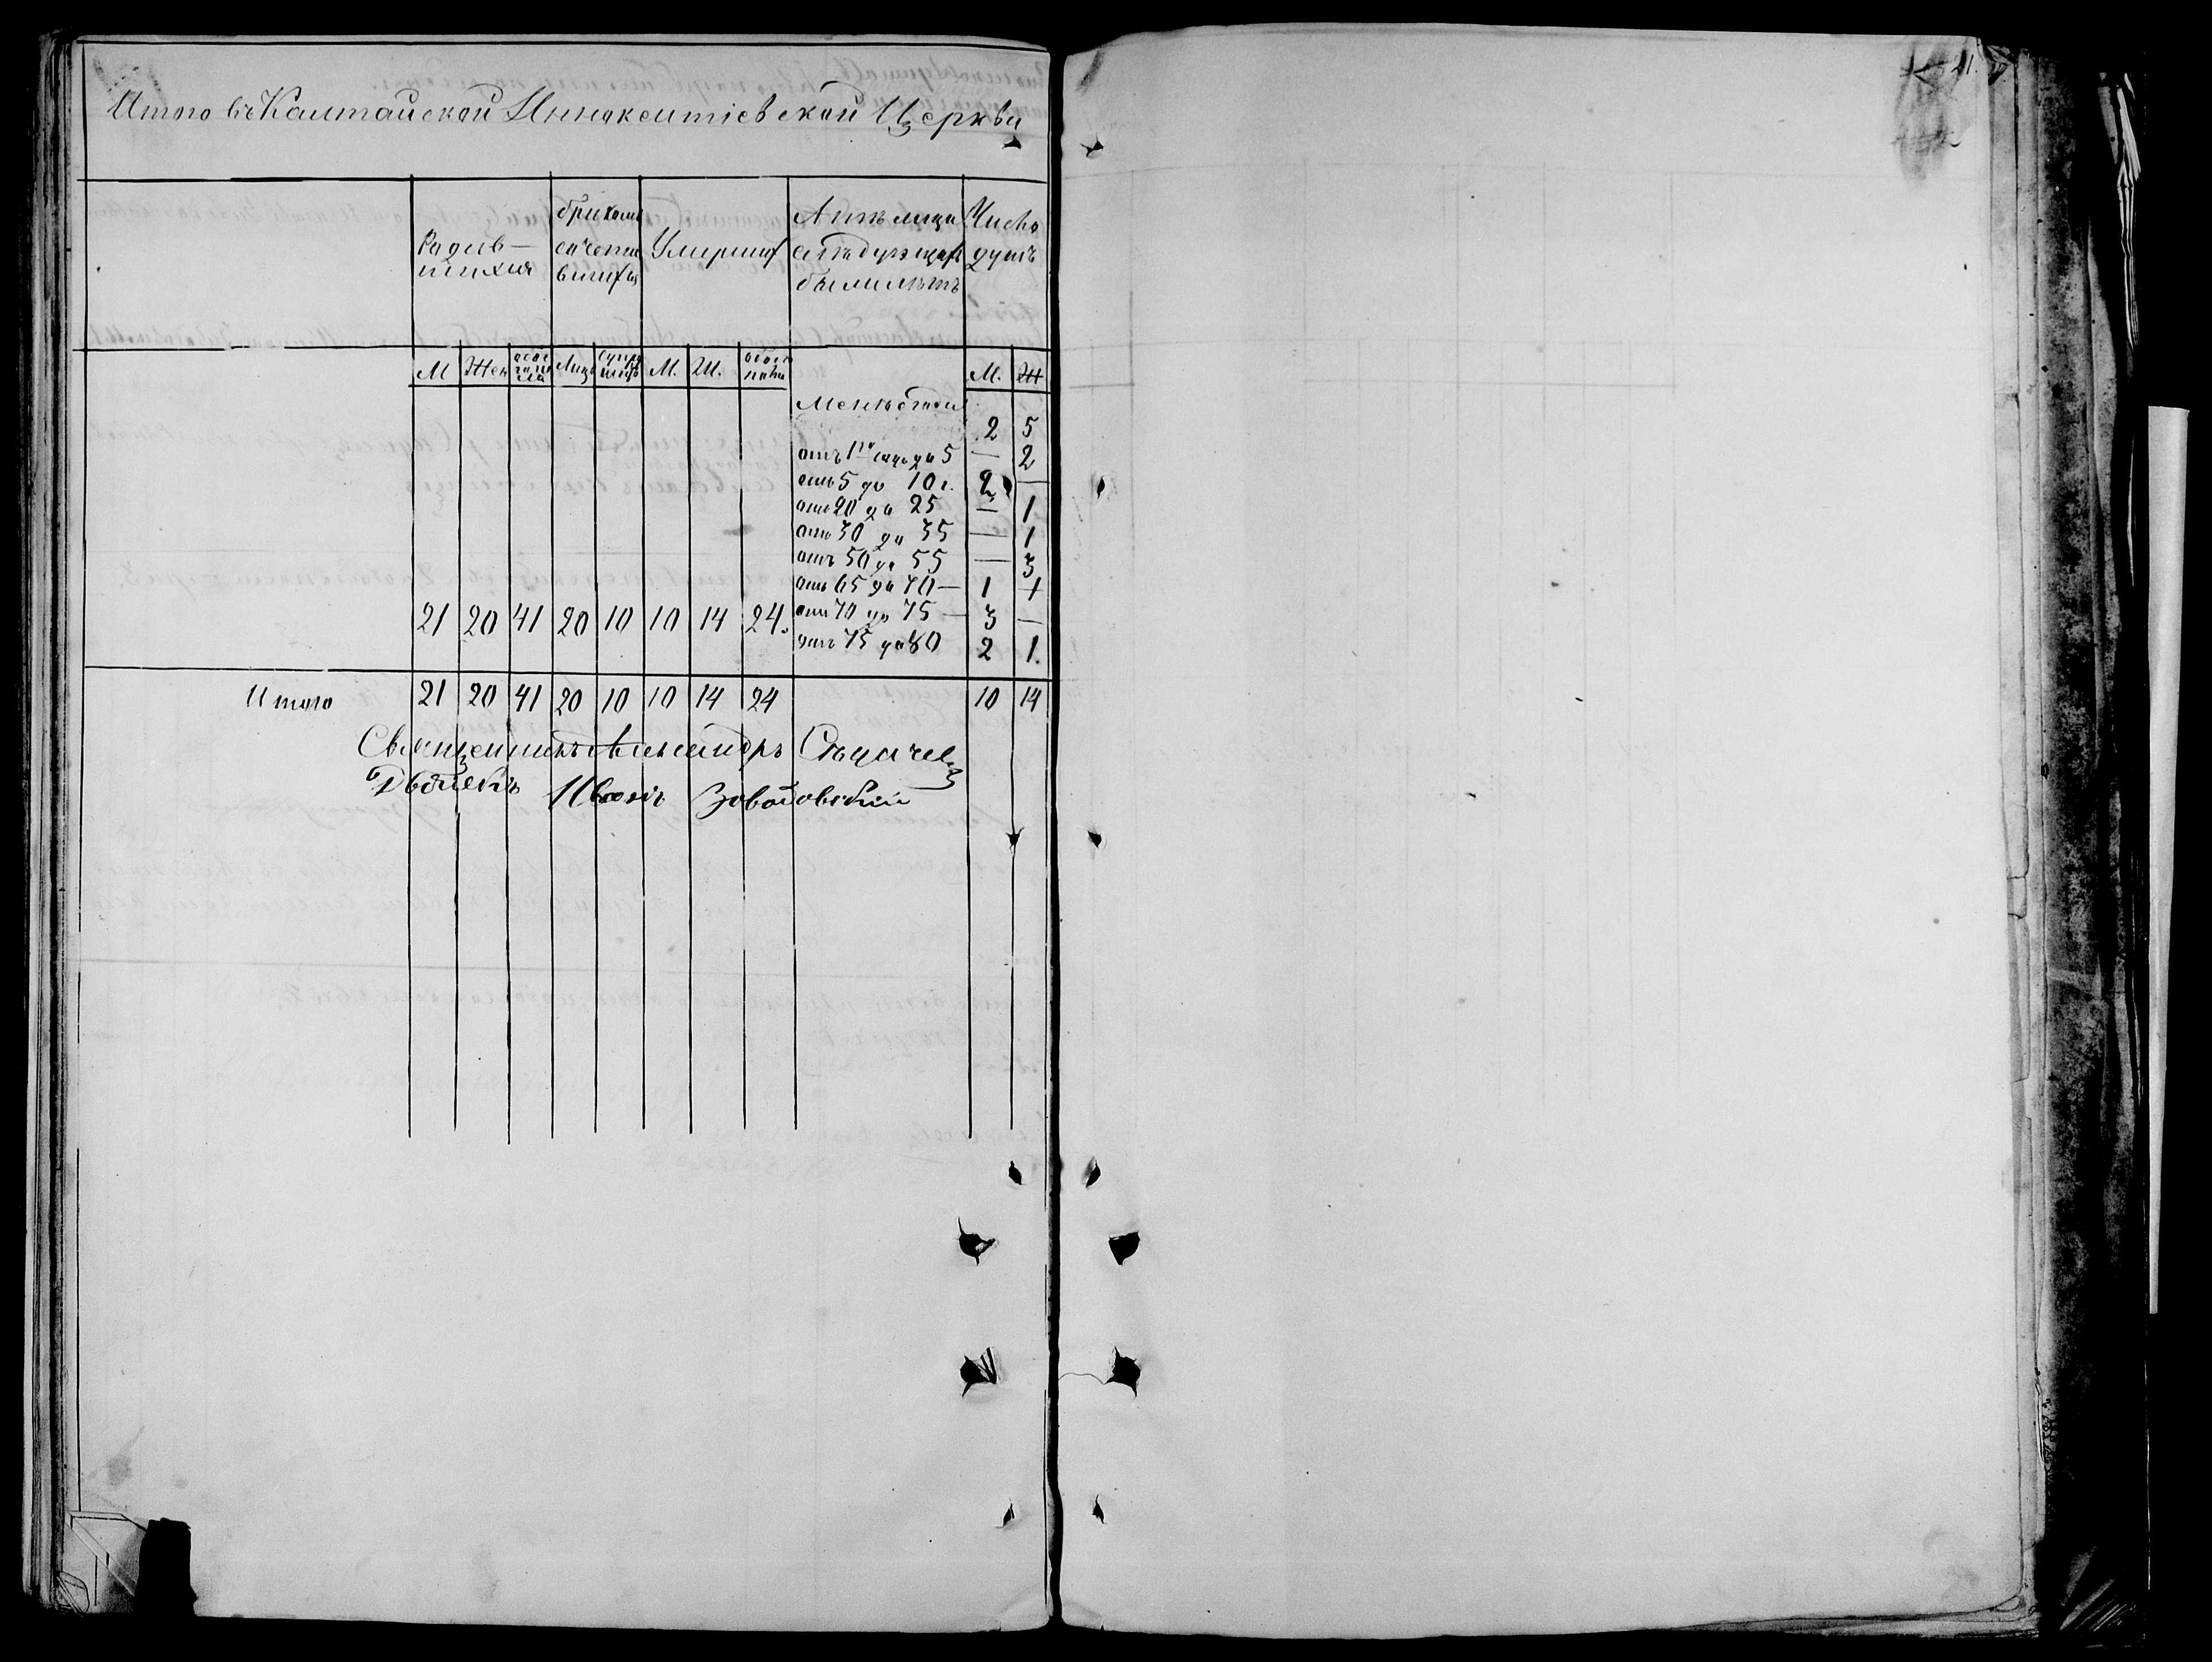 21.
Итого въ Калтайской Иннокентіевской Церкви
Родив-
шихся
бракомъ
сочета
вшихся
Умерших
Лицъ
Число
душъ
М Жен обоего пола Лицъ Супружествъ М. Ж. обоего пола М. Ж
Менѣ года 2 5
отъ 1го года до 5 — 2
отъ 5 до 10 г. 2 —
отъ 20 до 25 — 1
отъ 30 до 35 — 1
отъ 50 до 55 — 3
отъ 65 до 70 — 1 1
отъ 70 до 75 — 3 —
21 20 41 20 10 10 14 24.
отъ 75 до 80 2 1.
Итого 21 20 41 20 10 10 14 24 10 14
Священникъ Александръ
Дьячекъ